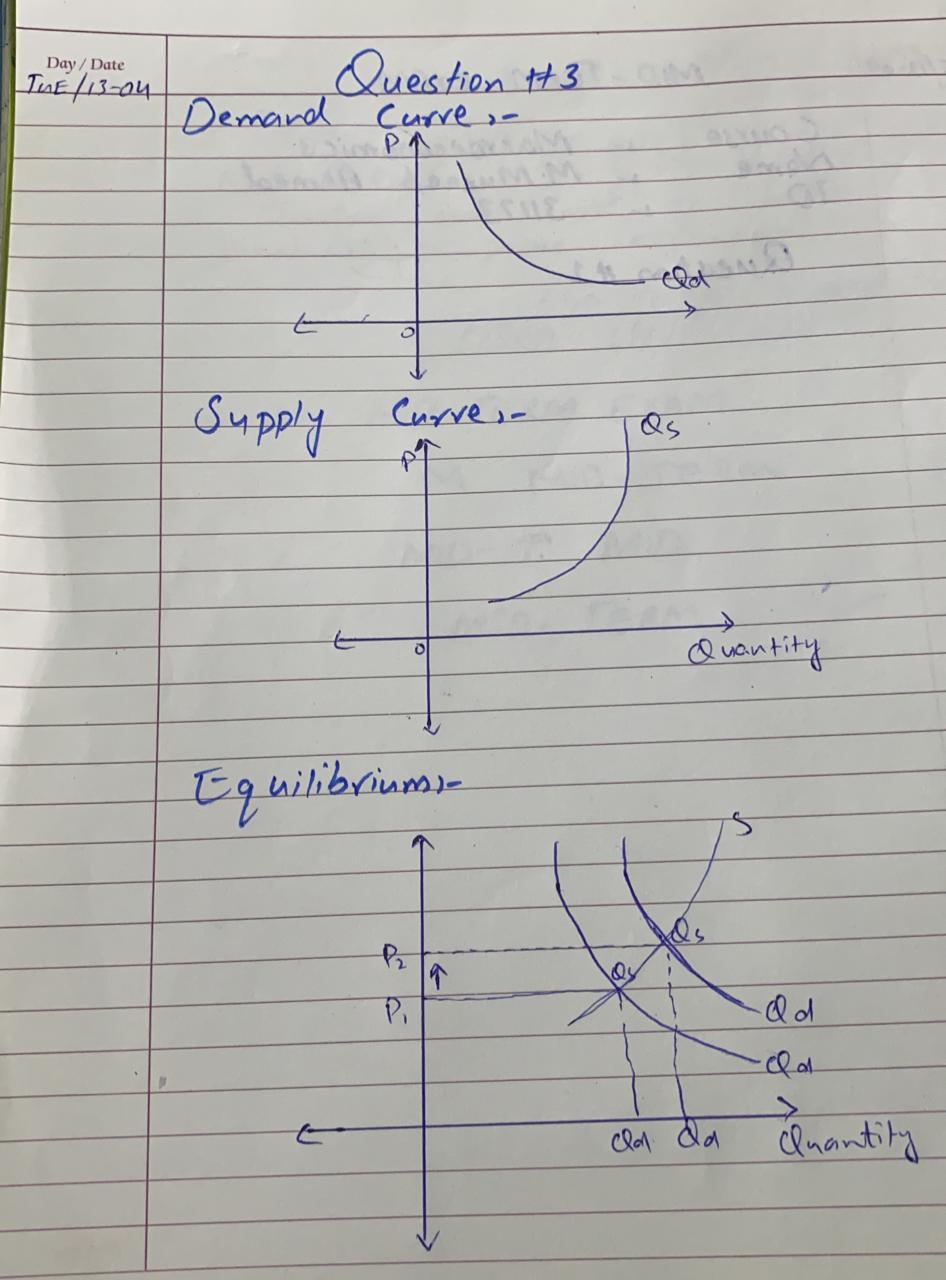 Day / Date
TUE/13-04
Question #3
Demand Curve:-
P
Qd
0
Supply Curve:-
Qs
P
0
Quantity
Equilibrium:-
S
P2
Qs
Qs
P1
Qd
Qd
Qd Qd Quantity